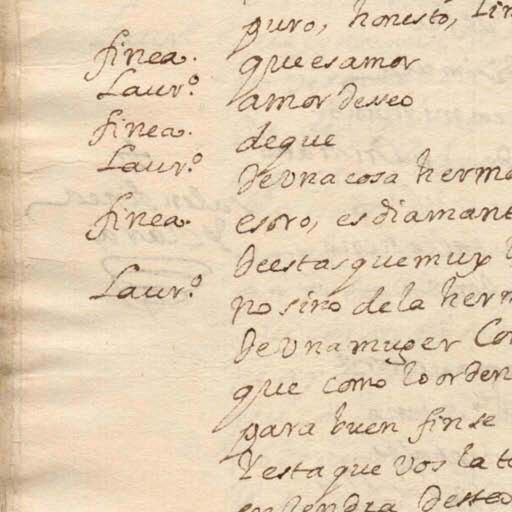 puro, honesto, Lim
finea. que es amor
Laur.º amor deseo
finea. de que
Laur.º de Una cosa hermo
finea. es oro, es diamant
de estas que muy
Laur.º no sino de la herm
de Una muger Co
que como lo orden
para buen fin se
Y esta que Vos la t
engendra desseo